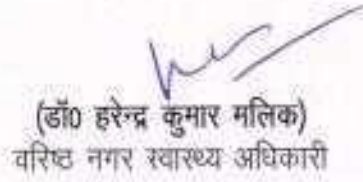 (डॉ0 हरेन्द्र कुमार मलिक)
वरिष्ठ नगर स्वास्थ्य अधिकारी